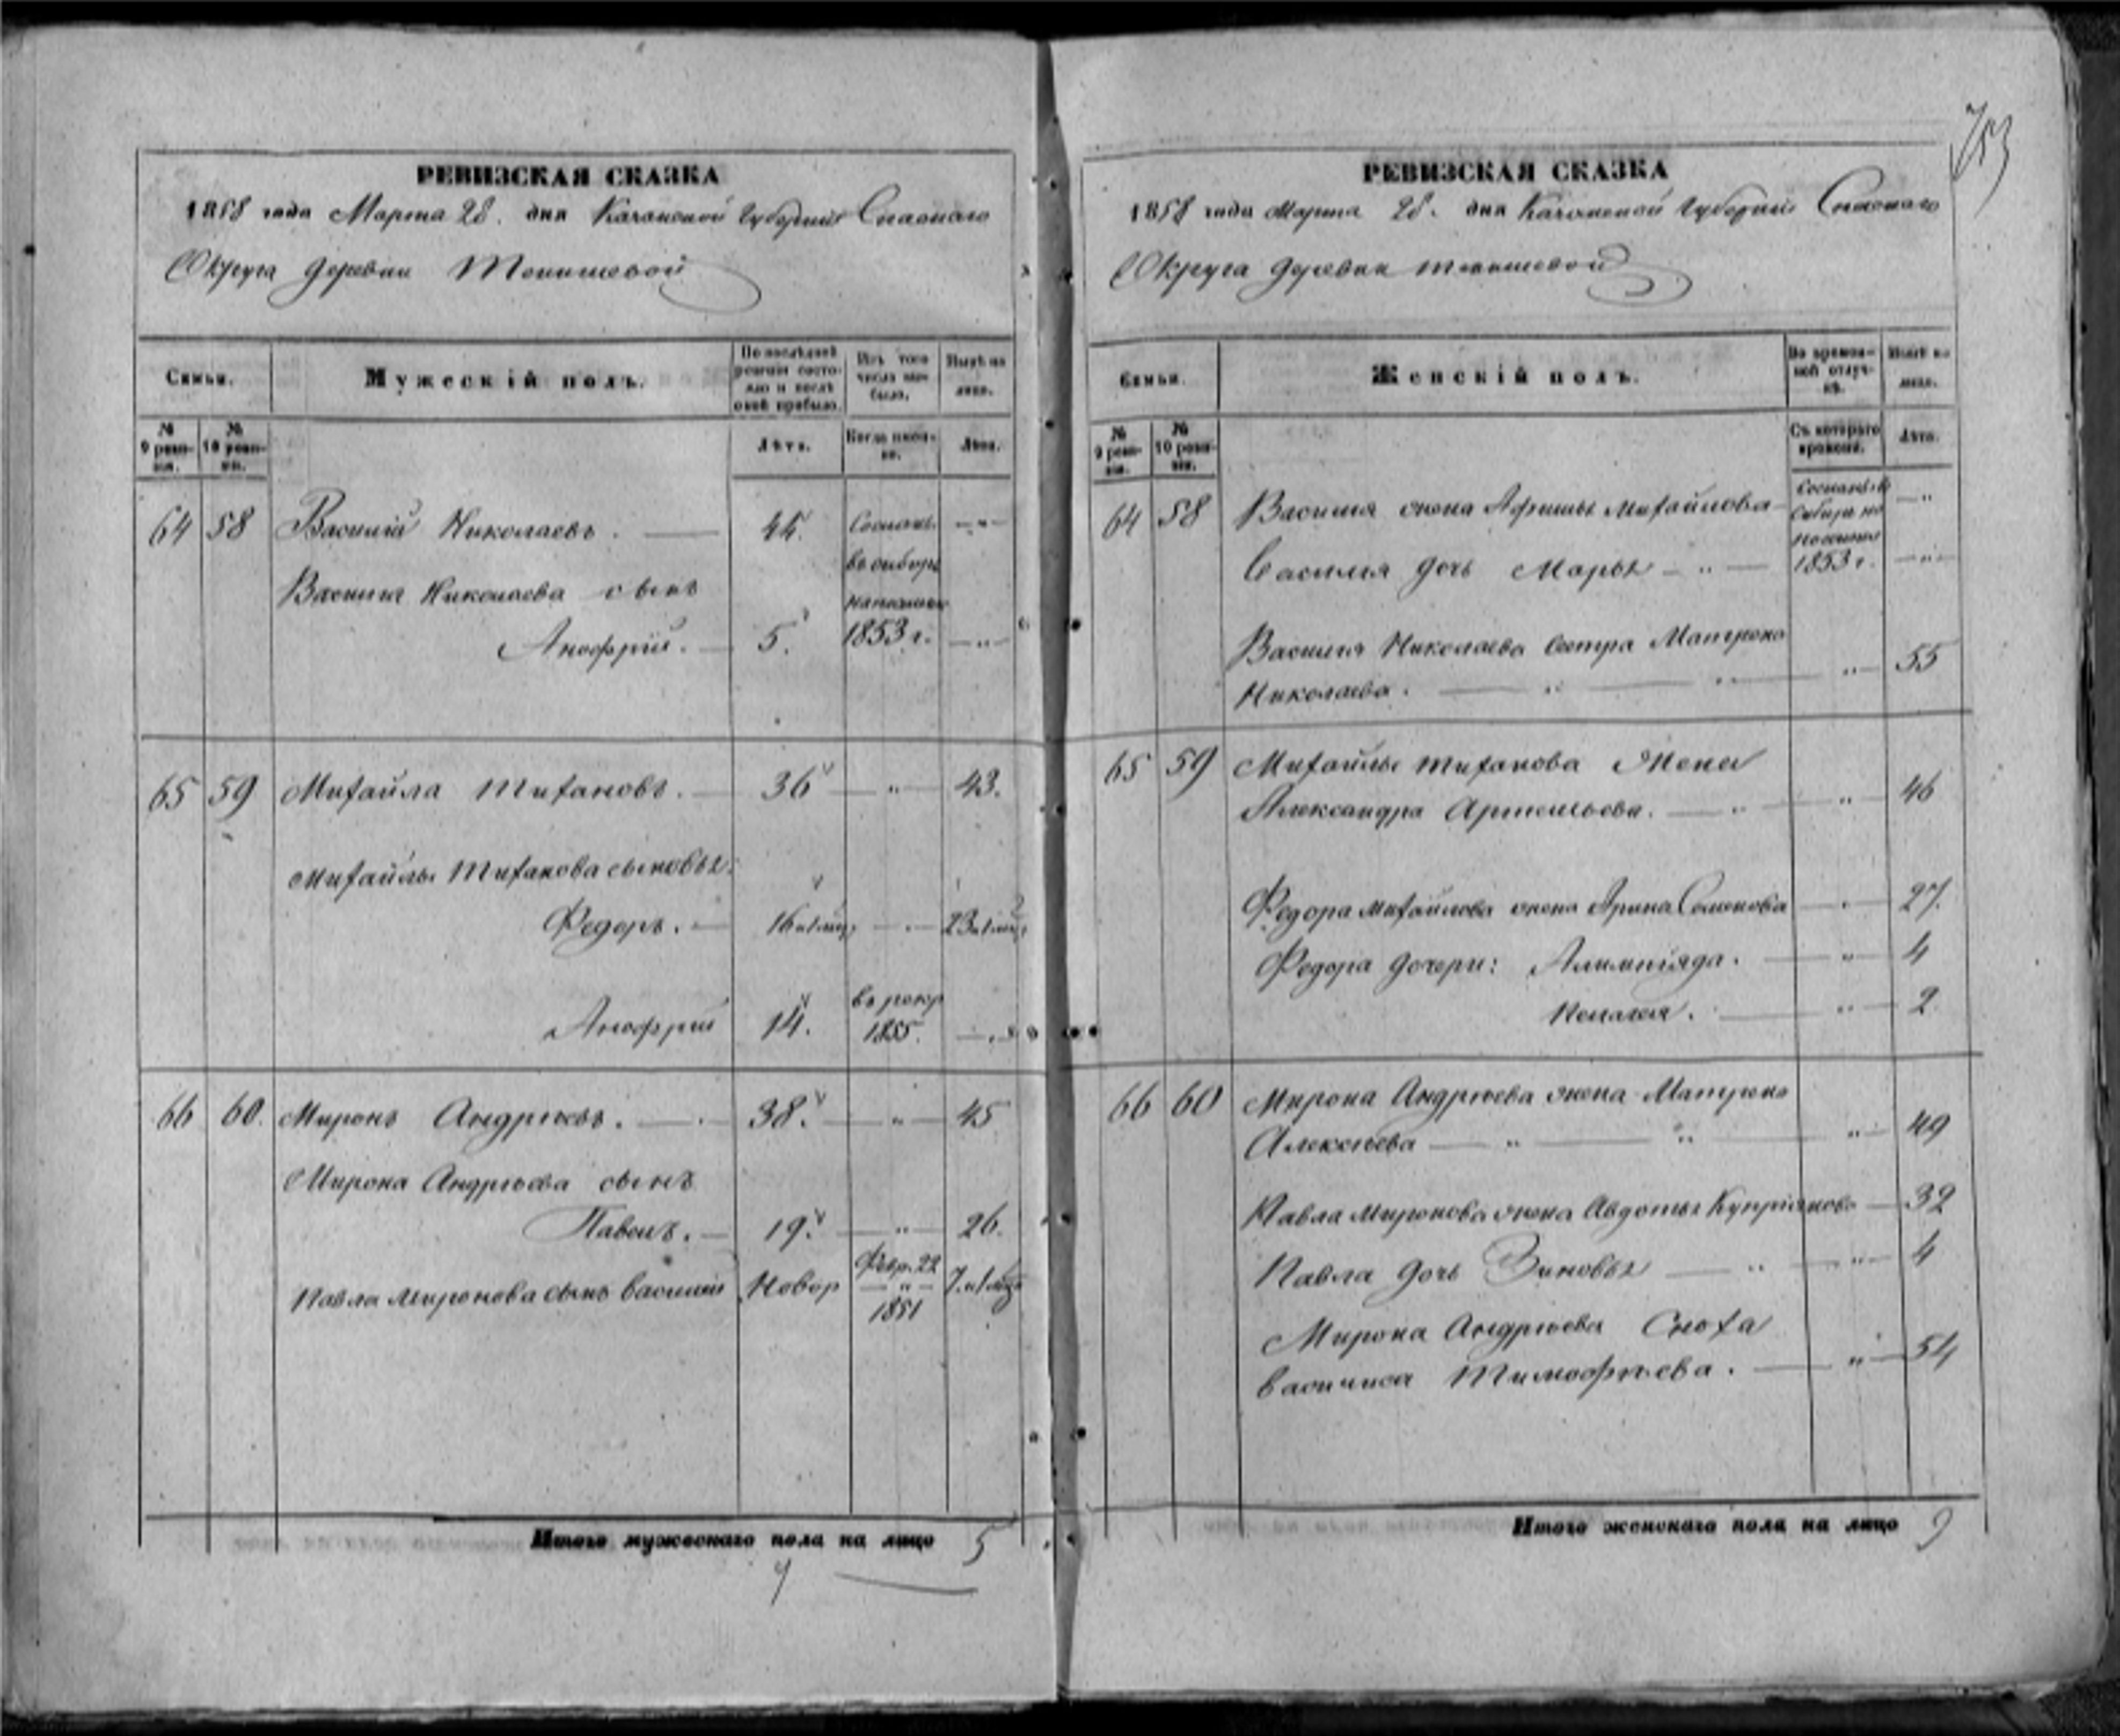 753
РЕВИЗСКАЯ СКАЗКА
1858 года Марта 28. дня Казанской Губернии Спаскаго
Округа деревни
Семьи.
Мужескій полъ.
По послѣдней ревизіи состояло и послѣ оной прибыло.
Изъ того числа выбыло.
Нынѣ на лицо.
№ 9 ревизіи.
№ 10 ревизіи.
Лѣта.
Когда именно.
Лѣта.
64 58 Василий Николаевъ. — 44. Сосланъ — „ —
въ сибирь
Василия Николаева сынъ
на поселен
Анофрій. — 5. 1853 г. — „ —
65 59 Михайла Тихановъ. — 36 — „ — 43.
Михайлы Тиханова сыновья:
Федоръ. —
Анофрій 14. въ рекр 1855. — „ —
66 60. Миронъ Андрѣевъ. — 38. — „ — 45
Мирона Андрѣева сынъ
Павелъ. — 19. — „ — 26.
Павла Миронова сынъ Василий Новор Февр. 22 — „ — 1851
Итого мужескаго пола на лицо 5
РЕВИЗСКАЯ СКАЗКА
1858 года Марта 28. дня Казанской Губернии Спаскаго
Округа деревни
Семьи.
Женскій полъ.
Во временной отлучкѣ.
Нынѣ на лицо.
№ 9 ревизіи.
№ 10 ревизіи.
Съ котораго времени.
Лѣта.
64 58 Василия жена Афимья Михайлова — „
Василия дочь Марья — „ — 1853 г. — „ —
Василия Николаева сестра Матрена
Николаева. — „ — „ — „ — 55
65 59 Михайлы Тиханова жена
Александра Артемьева. — „ — „ — 46
Федора Михайлова жена Арина Семенова — „ — 27.
Федора дочери: Алимпіяда. — „ — 4
Пелагея. — „ — 2
66 60 Мирона Андрѣева жена Матрена
Алексѣева — „ — „ — „ — 49
Павла Миронова жена Авдотья Купріянова — 32
Павла дочь Зиновья — „ — „ — 4
Мирона Андрѣева Сноха
Василиса Тимофѣева. — „ — 54
Итого женскаго пола на лицо 9